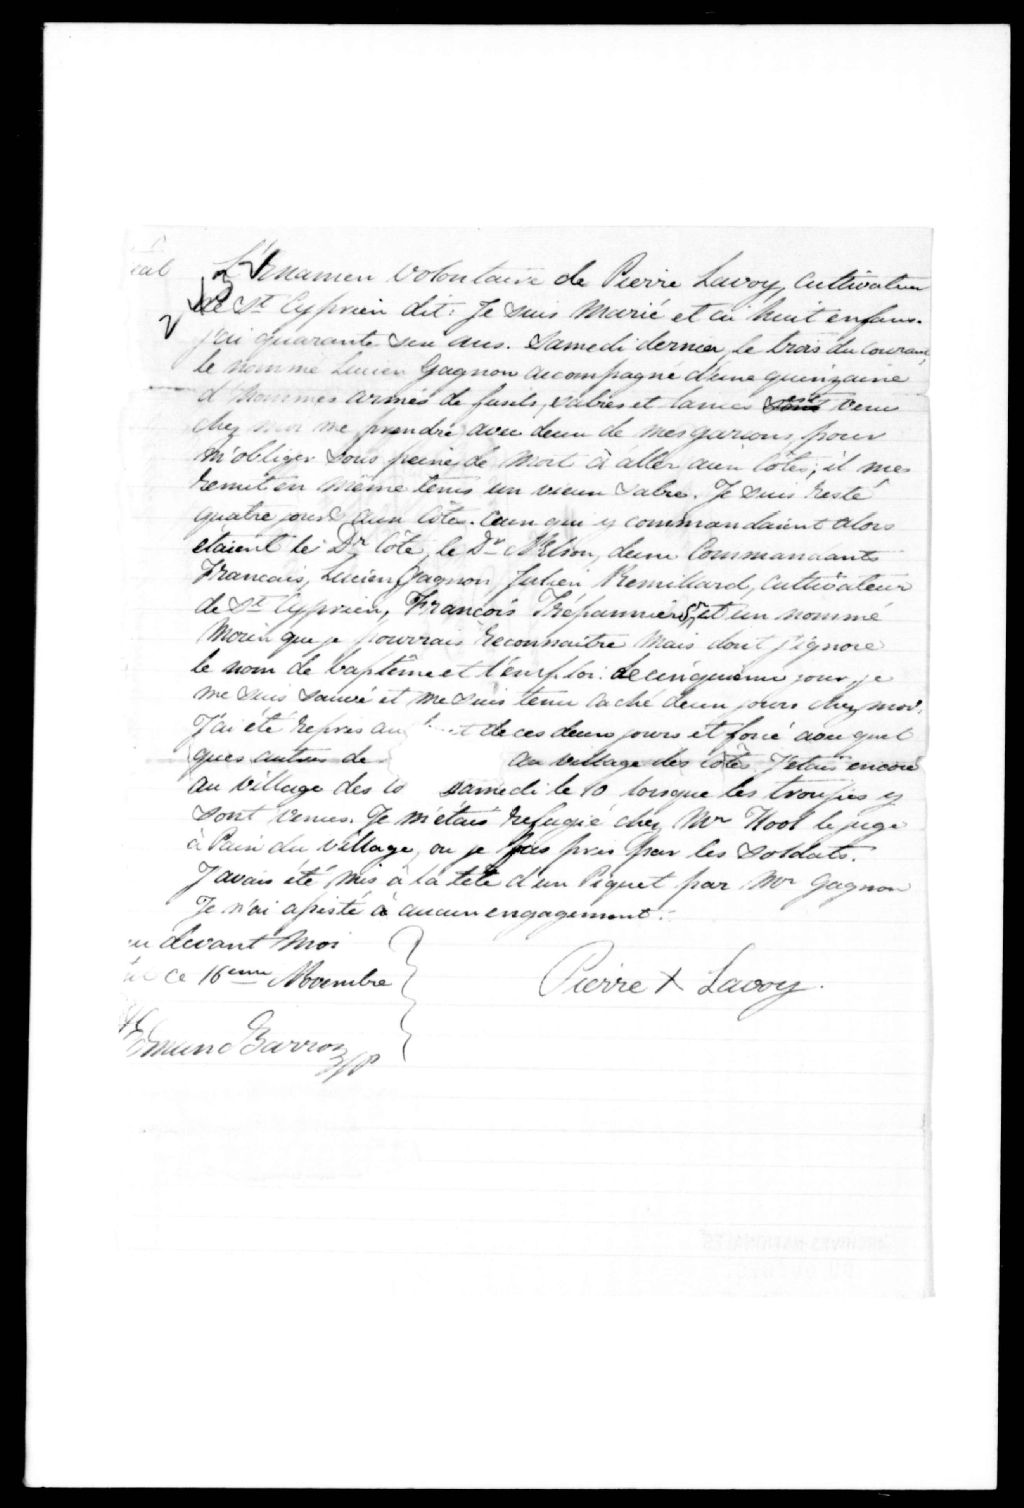 éal
L'Examen Volontaire de Pierre Lavoy, Cultivateur
de St. Cyprien dit: Je suis Marié et ai huit enfans.
J'ai quarante six ans. Samedi dernier, le trois du courant,
le nommé Lucien Gagnon accompagné d'une quinzaine
d'hommes armés de fusils, sabres et lances est venu
chez moi me prendre avec deux de mes garcons, pour
m'obliger sous peine de Mort à aller aux Côtes; il me
remit en même tems un vieux sabre. Je suis resté
quatre jours aux Côtes. Ceux qui y commandaient alors
étaient le Dr. Côte, le Dr. Nelson, deux Commandants
Francais, Lucien Gagnon, Julien Remillard, Cultivateur
de St. Cyprien, François Trépannier et un nommé
Morin que je pourrais reconnaitre Mais dont j'ignore
le nom de baptême et l'emploi: le cinquieme jour, je
me suis sauvé et me suis tenu caché deux jours chez moi.
J'ai été repris au t de ces deux jours et forcé avec quel
ques autres de au village des côtes J'étais encore
au village des Co samedi le 10 lorsque les troupes y
sont venues. Je m'étais refugié chez Mr Hoot le juge
à Paix du village, ou je fus pris par les soldats.
J'avais été Mis à la tête d'un Piquet par Mr Gagnon
Je n'ai assisté à aucun engagement.
devant Moi
ce 16eme Novembre
Pierre X Lavoy.
Edmund Barron
JP
ARCHIVES NATIONALES
DU QUÉBEC